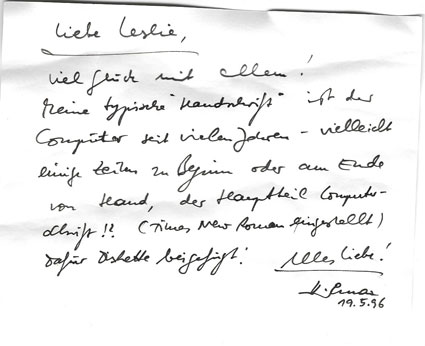 Liebe Leslie,
viel Glück mit allem!
Meine typische "Handschrift" ist der
Computer seit vielen Jahren - vielleicht
einige Zeilen zu Beginn oder am Ende
von Hand, der Hauptteil Computer-
schrift!! (Times New Roman eingestellt)
Dafür Diskette beigefügt! Alles Liebe!
19.5.96